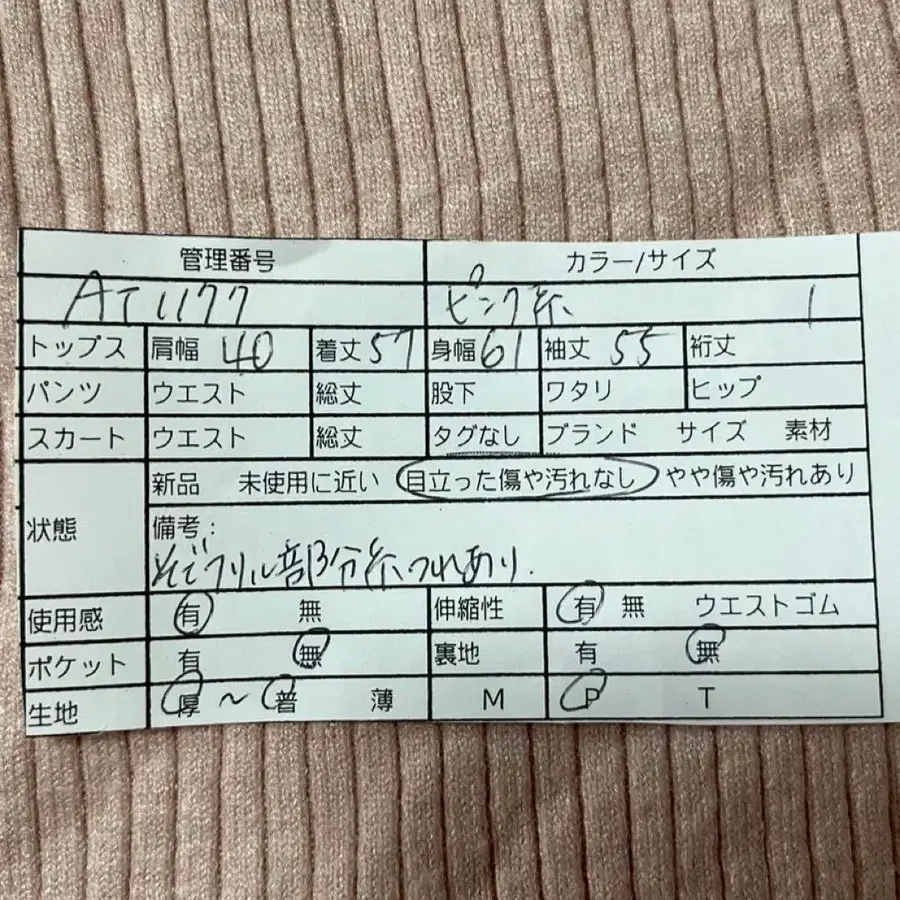 管理番号 カラー/サイズ
AT1177 ピンク系 1
トップス 肩幅 40 着丈 57 身幅 61 袖丈 55 裄丈
パンツ ウエスト 総丈 股下 ワタリ ヒップ
スカート ウエスト 総丈 タグなし ブランド サイズ 素材
状態 新品 未使用に近い 目立った傷や汚れなし やや傷や汚れあり
備考:
そでフリル部分糸つれあり.
使用感 有 無 伸縮性 有 無 ウエストゴム
ポケット 有 無 裏地 有 無
生地 厚 ~ 普 薄 M P T